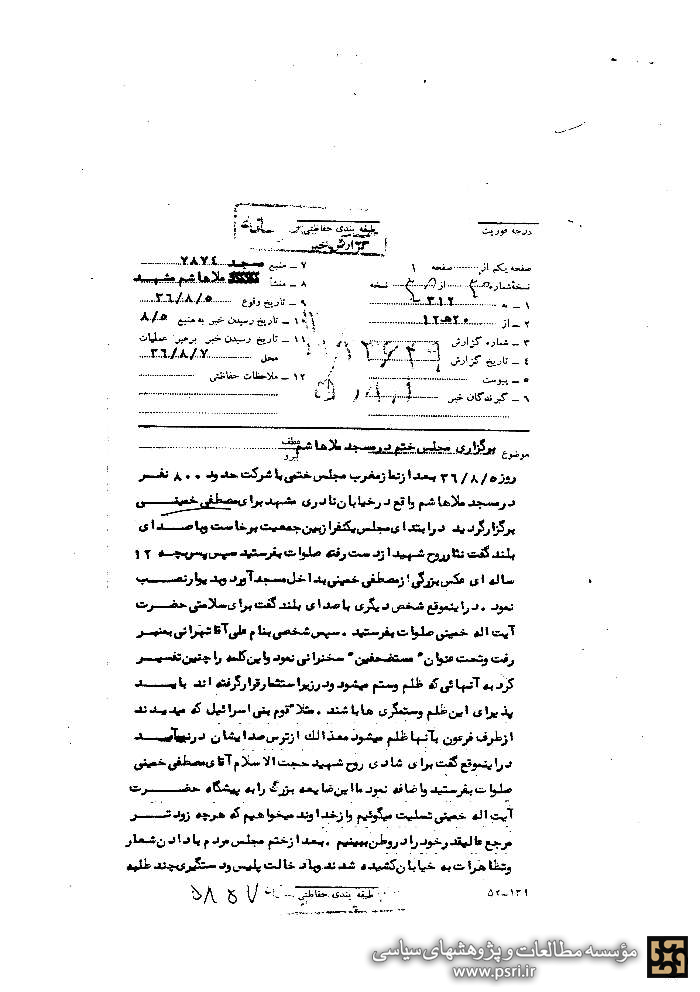 درجه فوریت
طبقه بندی حفاظتی
گزارش خبر
صفحه یکم از صفحه ۱
نسخهٔ شماره از نسخه
۱ ـ به ۳۱۲
۲ ـ از ۱۲ ه‍ ۲۰
۳ ـ شماره گزارش
۴ ـ تاریخ گزارش
۵ ـ پیوست
۶ ـ گیرندگان خبر
۷ ـ منبع ۷۸۷۴
۸ ـ منشأ ملاهاشم مشهد
۹ ـ تاریخ وقوع ۳۶/۸/۵
۱۰ ـ تاریخ رسیدن خبر به منبع ۸/۵
۱۱ ـ تاریخ رسیدن خبر برهبر عملیات
محل ۳۶/۸/۷
۱۲ ـ ملاحظات حفاظتی
موضوع برگزاری مجلس ختم در مسجد ملاهاشم
روز ۳۶/۸/۵ بعد از نماز مغرب مجلس ختمی با شرکت حدود ۸۰۰ نفر
در مسجد ملاهاشم واقع در خیابان نادری مشهد برای مصطفی خمینی
برگزار گردید در ابتدای مجلس یکنفر از بین جمعیت برخاست و با صدای
بلند گفت نثار روح شهید از دست رفته صلوات بفرستید سپس پسر بچه ۱۲
ساله ای عکس بزرگی از مصطفی خمینی بداخل مسجد آورد و بدیوار نصب
نمود . در اینموقع شخص دیگری با صدای بلند گفت برای سلامتی حضرت
آیت اله خمینی صلوات بفرستید . سپس شخصی بنام علی آقا تهرانی بمنبر
رفت و تحت عنوان "مستضعفین" سخنرانی نمود و این کلمه را چنین تفسیر
کرد به آنهائی که ظلم و ستم میشود و در زیر استثمار قرار گرفته اند باید
پذیرای این ظلم و ستمگری ها باشند . مثلا قوم بنی اسرائیل که میدیدند
از طرف فرعون بآنها ظلم میشود معذالك از ترس صدایشان در نمیآمد
در اینموقع گفت برای شادی روح شهید حجت الاسلام آقای مصطفی خمینی
صلوات بفرستید و اضافه نمود ما این ضایعه بزرگ را به پیشگاه حضرت
آیت اله خمینی تسلیت میگوئیم و از خداوند میخواهیم که هرچه زودتر
مرجع عالیقدر خود را در وطن ببینیم . بعد از ختم مجلس مردم با دادن شعار
و تظاهرات به خیابان کشیده شدند و با دخالت پلیس و دستگیری چند طلبه
۵۲-۱۳۱
طبقه بندی حفاظتی
مؤسسه مطالعات و پژوهشهای سیاسی
www.psri.ir